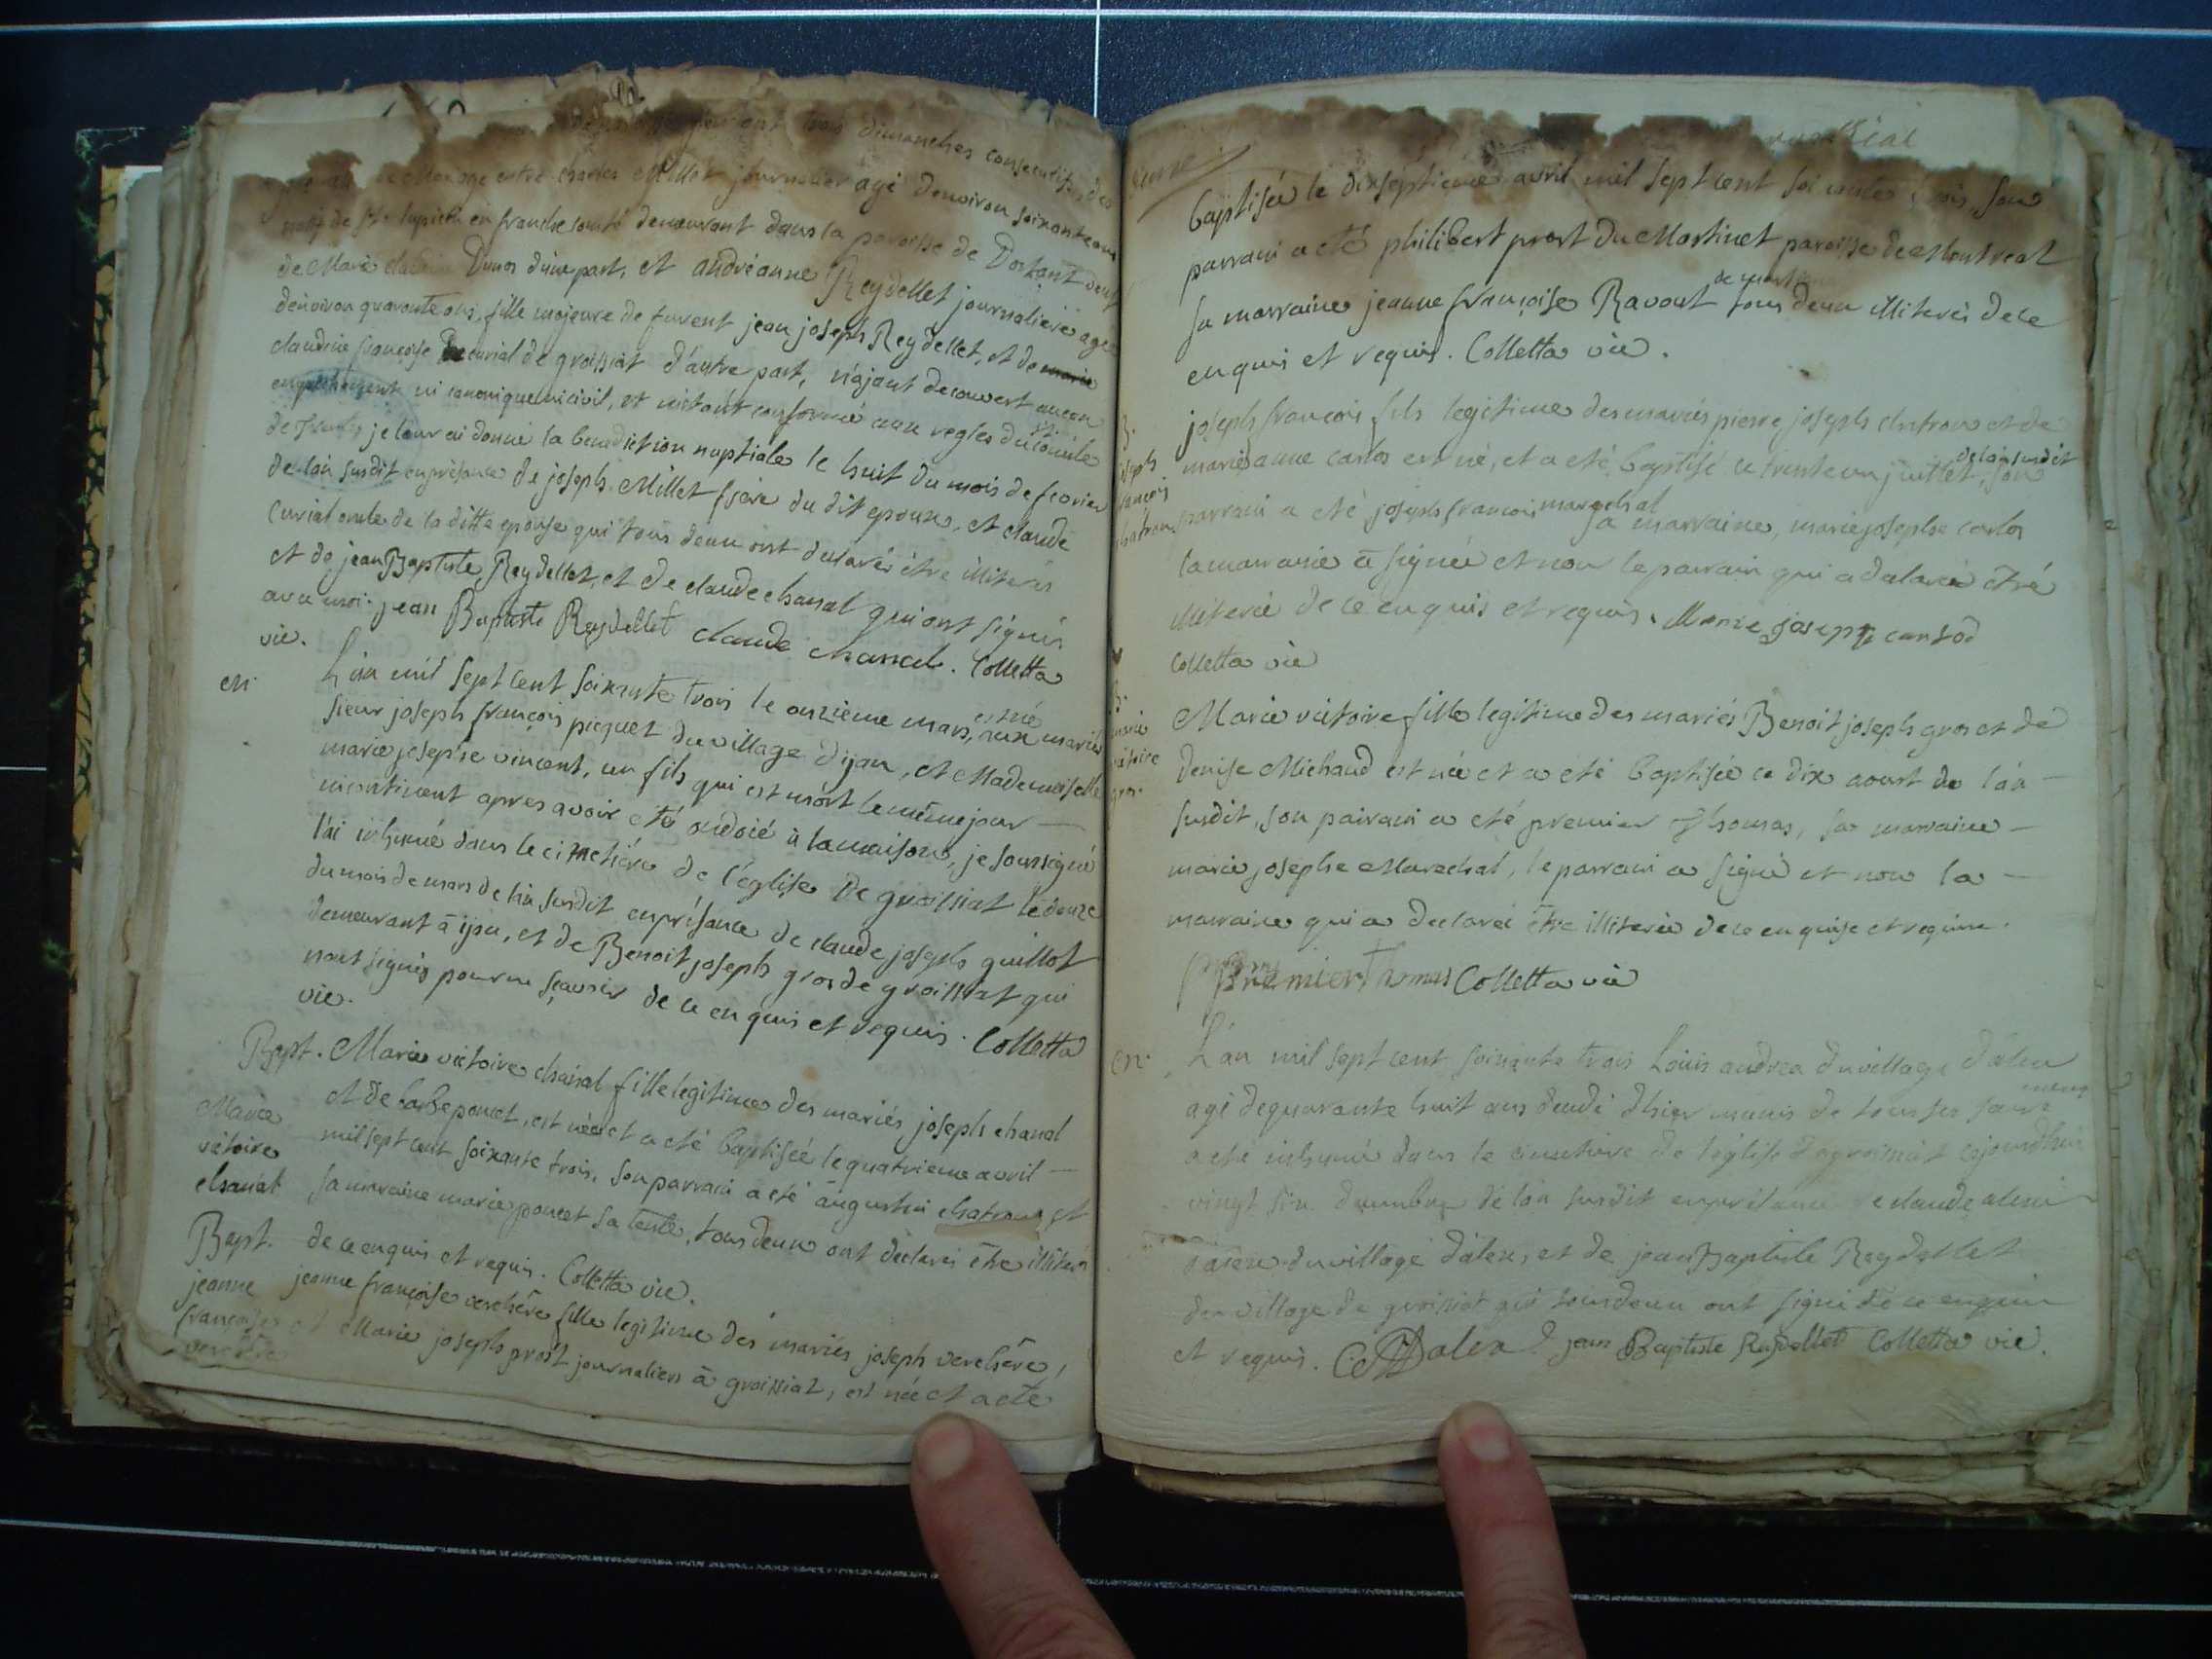 trois dimanches consecutifs, des
de mariage entre charles Millet journalier agé denviron soixante ans
natif de st lupicin en franche comté demeurant dans la paroisse de Dortant veuf
de Marie Dunos d'une part, et andréanne Reydellet journaliere agée
denviron quarante ans, fille majeure de furent jean joseph Reydellet, et de marie
claudine françoise curial de groissiat d'autre part, n'ajant decouvert aucun
empechement ni canonique ni civil, et m'étant conformé aux regles du st concile
de Trente, je leur ai donné la benediction nuptiale le huit du mois de fevrier
de l'an susdit en présence de joseph Millet frère du dit epoux, et claude
curial oncle de la ditte epouse qui tous deux ont declarés être illiterés
et de jean Baptiste Reydellet, et de claude chanal qui ont signés
avec moi. jean Baptiste Reydellet claude chanal. Colletta
vic.
en.
L'an mil sept cent soixante trois le onzieme mars, est né aux mariés
sieur joseph françois picquet du village d'ijan, et Mademoiselle
marie josephe vincent, un fils qui est mort le même jour
incontinent apres avoir été ondoié à la maison, je soussigné
l'ai inhumé dans le cimetière de l'église de groissiat le douze
du mois de mars de l'an susdit en présance de claude joseph guillot
demeurant à ijan, et de Benoit joseph gros de groissiat qui
n'ont signés pour ne sçavoir de ce enquis et requis. Colletta
vic.
Bapt. Marie victoire chanal fille legitime des mariés joseph chanal
et de poncet, est née et a eté baptisée le quatrieme avril
Marie
victoire
chanal
mil sept cent soixante trois, son parrain a eté augustin chatron, et
sa marraine marie poncet sa tente, tous deux ont declarés être illiterés
de ce enquis et requis. Colletta vic.
Bapt.
jeanne
françoise
verchere
jeanne françoise verchère fille legitime des mariés joseph verchère,
et Marie joseph prost journaliers à groissiat, est née et a eté
baptisée le dixseptieme avril mil sept cent soixante trois, son
parrain a eté philibert prost du Martinet paroisse de Montreal
sa marraine jeanne françoise Ravout tous deux illiterés de ce
enquis et requis. Colletta vic.
B.
joseph
françois
chatron
joseph françois fils legitime des mariés pierre joseph chatron et de
marie anne carlos est né, et a eté baptisé le trente un juillet de l'an susdit, son
parrain a eté joseph françois marechal sa marraine, marie josephe carlos
la marraine a signée et non le parrain qui a declaré être
illiteré de ce enquis et requis. Marie josephe
Colletta vic
B.
marie
victoire
gros.
Marie victoire fille legitime des mariés Benoit joseph gros et de
Denise Michaud est née et a eté baptisée ce dix aoust de l'an
susdit, son pairain a eté premier Thomas, sa marraine
marie josephe Marechal, le parrain a signé et non la
marraine qui a declaré être illiterée de ce enquise et requise.
Premier Thomas Colletta vic
en.
L'an mil sept cent soixante trois Louis andrea du village d'alex
agé de quarante huit ans decedé d'hier munis de tous ses sacremens
a eté inhumé dans le cimetiere de l'église de groissiat ce jourdhui
vingt six decembre de l'an susdit en présance de claude
du village d'alex, et de jean Baptiste Reydellet
du village de groissiat qui tous deux ont signé de ce enquis
et requis. jean Baptiste Reydellet Colletta vic.